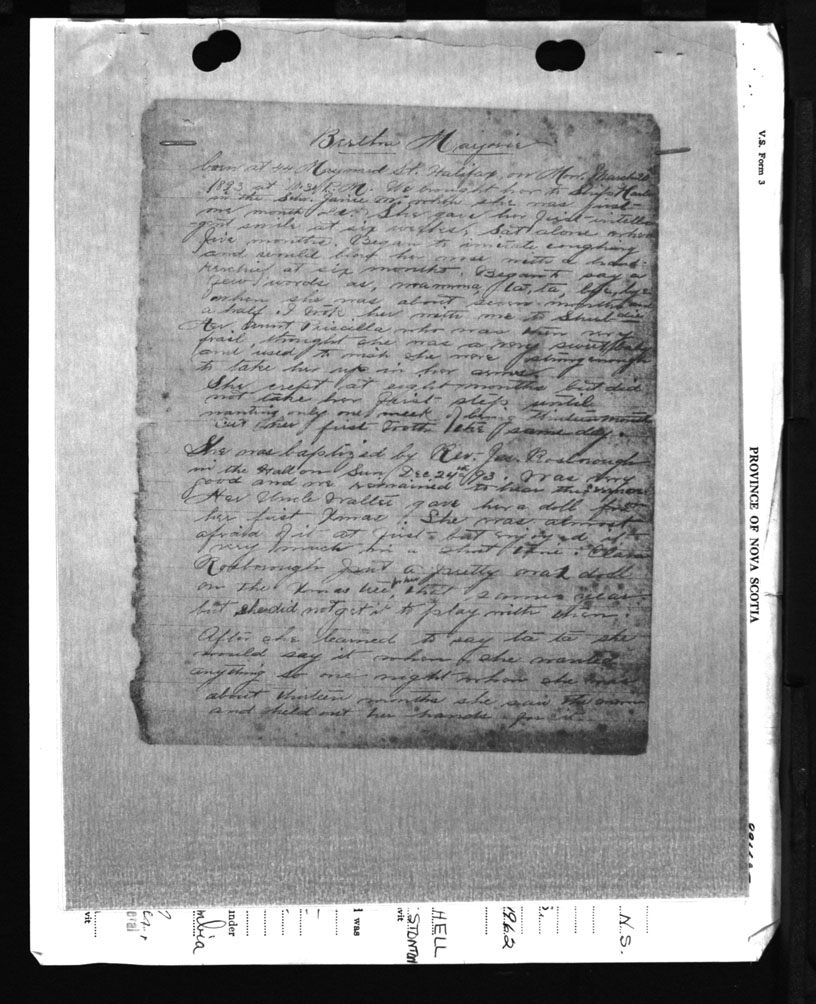 Bertha Marjorie
born at 44 Maynard St. Halifax, on Mon. March 20
1893 at P.M. We brought her to
in the Schr. Janie M. when she was just
one month old. She gave her first intelli-
gent smile at six weeks, sat alone when
five months. Began to imitate coughing
and would her nose with a hand-
kerchief at six months. Began to say a
few words as, mamma, ta, ta, bye, bye
when she was about seven months and
a half. I took her with me to
Her Aunt Priscilla who was then very
frail, thought she was a very sweet baby
and used to wish she were strong enough
to take her up in her arms.
She crept at eight months but did
not take her first step until
wanting only one week of being thirteen months
Cut her first tooth the same day.
She was baptized by Rev. Jas. Rosborough
in the Hall on Sun. Dec 24th /93. Was very
good and we remained to hear the sermon
Her Uncle Walter gave her a doll for
her first Xmas. She was almost
afraid of it at first but enjoyed it
very much in a short time. Clara
Rosborough put a pretty wax doll
on the Xmas tree, for her that same year
but she did not get it to play with then.
After she learned to say ta ta she
would say it when she wanted
anything so one night when she was
about thirteen months she saw the moon
and held out her hands for it.
V.S. Form 3
PROVINCE OF NOVA SCOTIA
N.S.
1962
HELL
STONTON
I was
under
mbia
vit